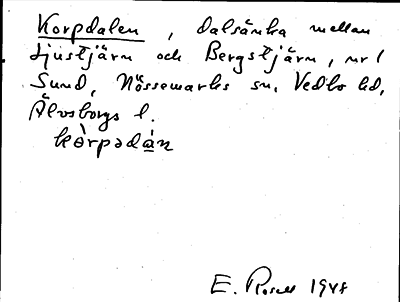 Korpdalen, dalsänka mellan
Ljustjärn och Bergstjärn, nr 1
Sund, Nössemarks sn, Vedbo hd,
Älvsborgs l.
kòrpədán
E. Rosell 1948